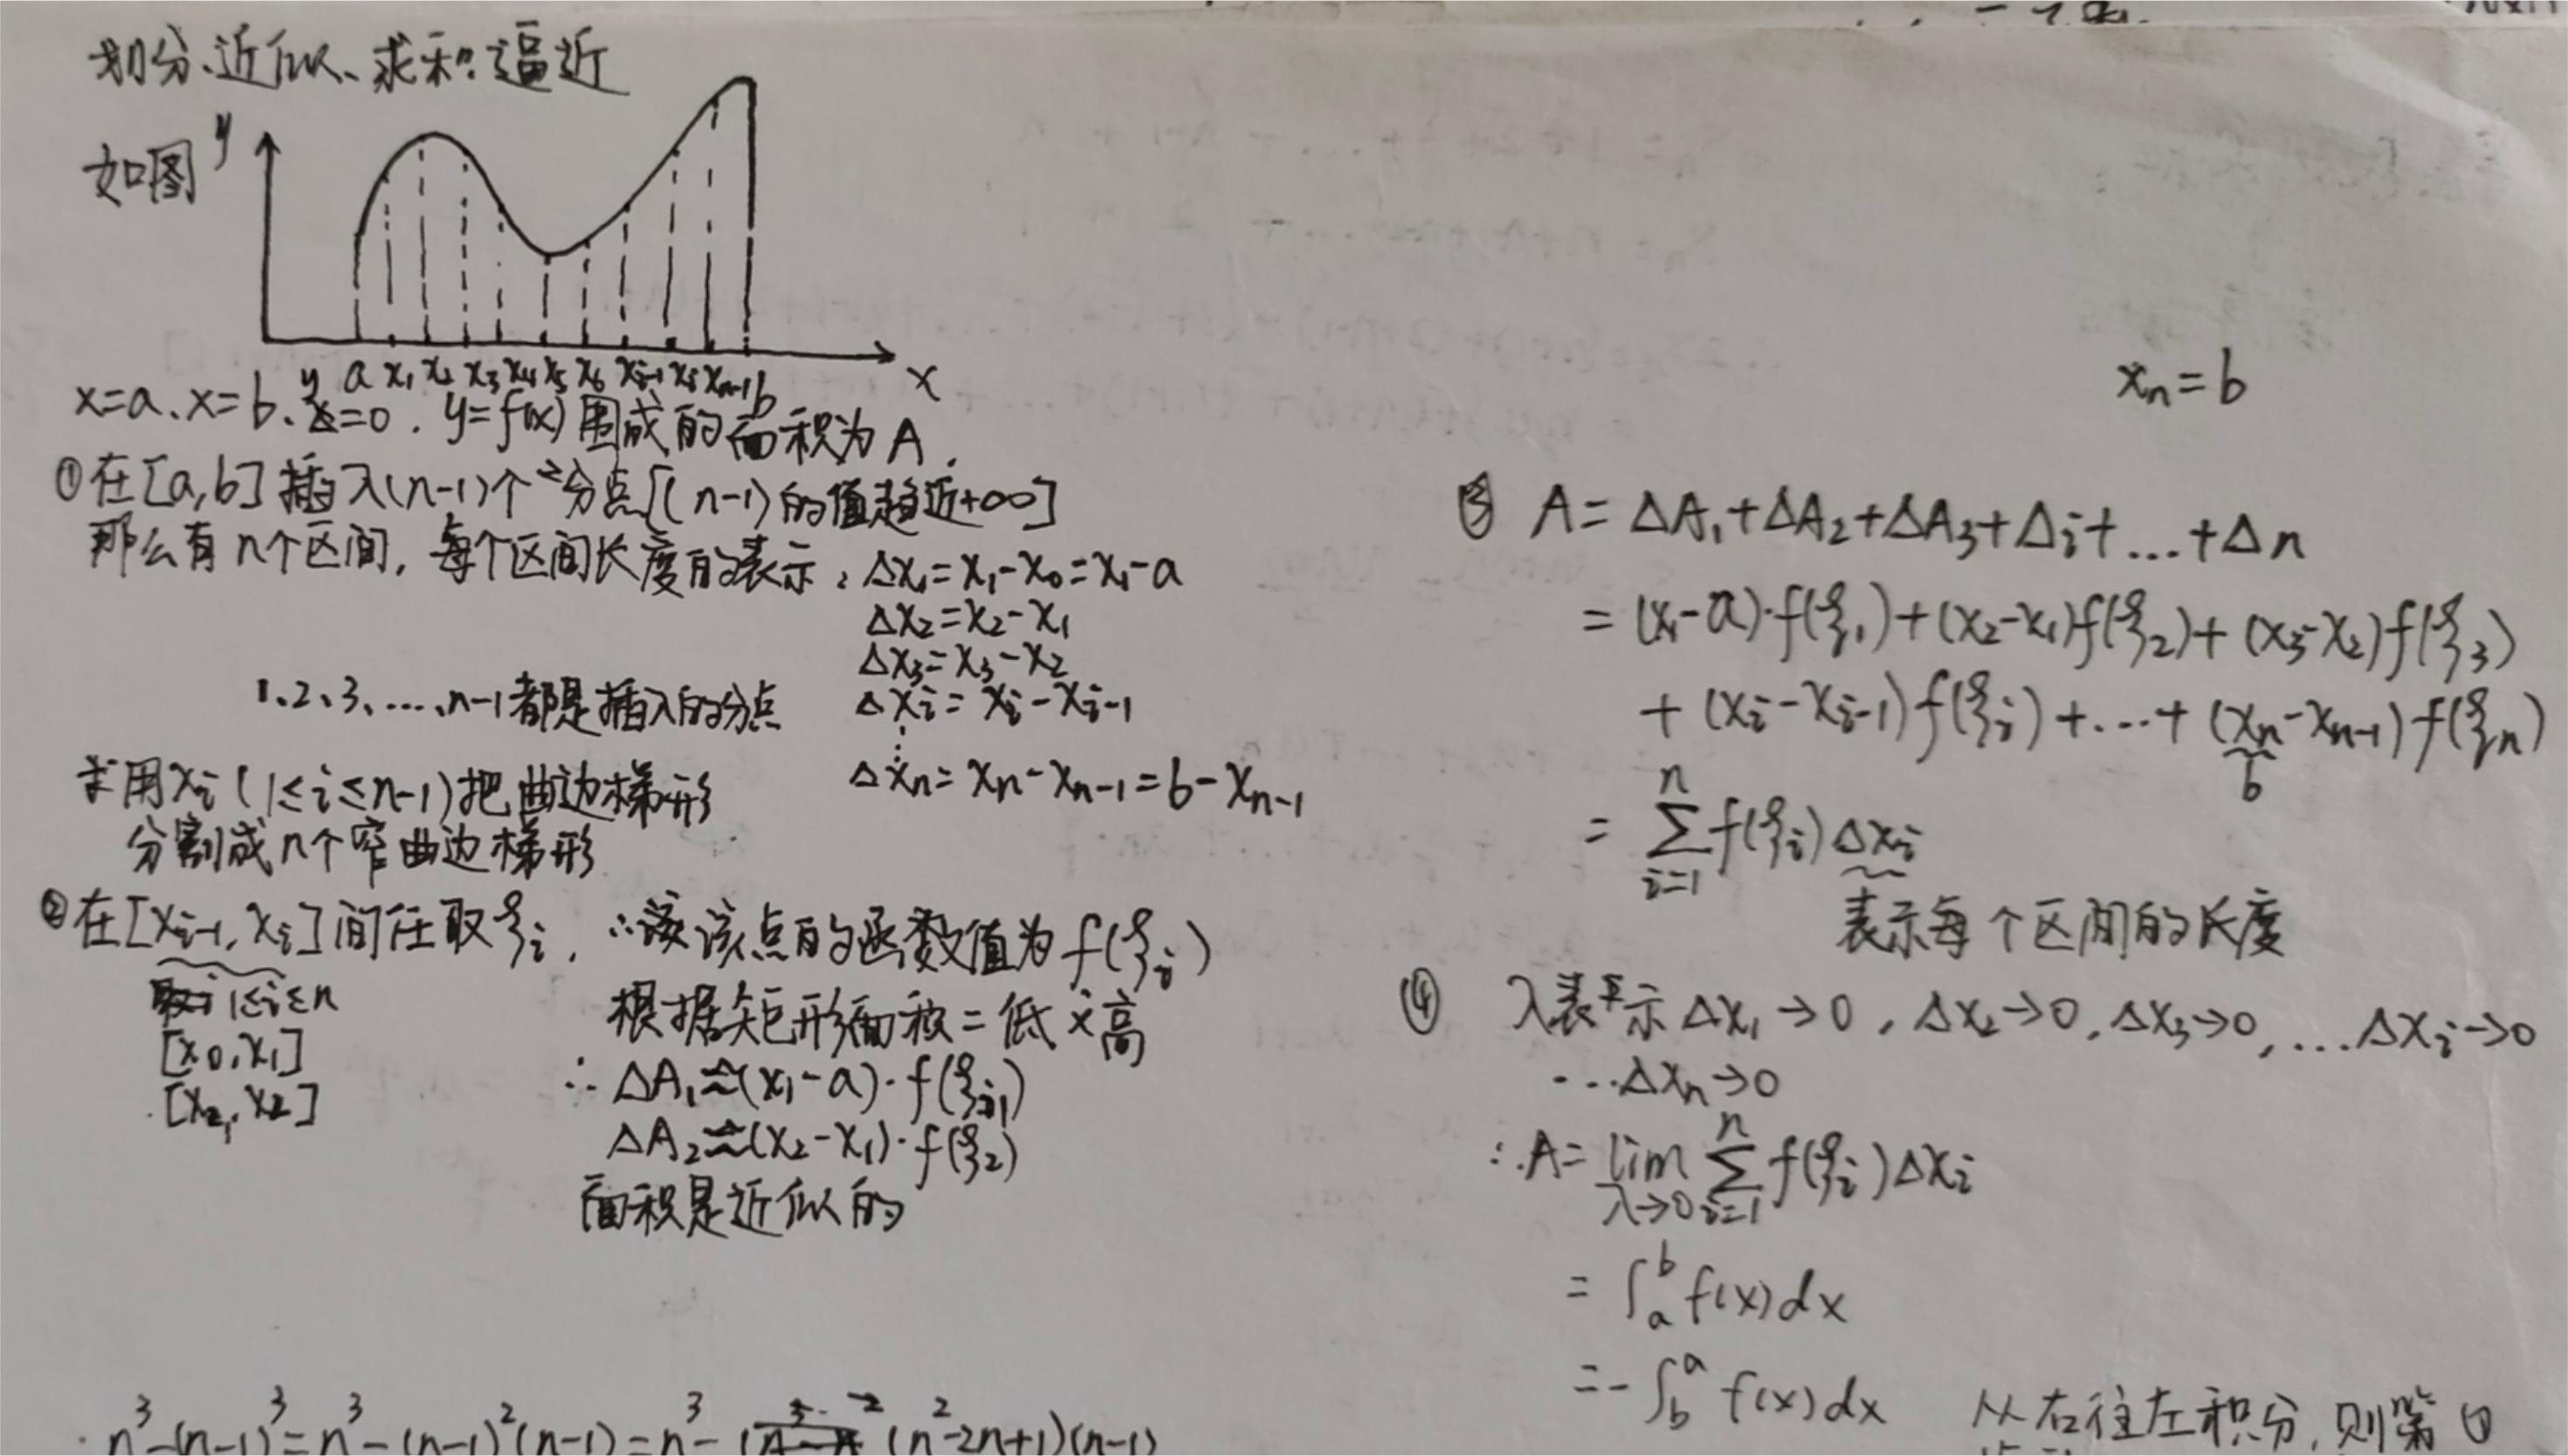 划分、近似、求和、逼近
如图 y
a x₁ x₂ x₃ x₄ x₅ x₆ xᵢ₋₁ xᵢ xₙ₋₁ b x
x=a、x=b、y=0、y=f(x)围成的面积为A.
①在[a,b]插入(n-1)个分点[(n-1)的值趋近+∞]
那么有n个区间,每个区间长度的表示: Δx₁=x₁-x₀=x₁-a
Δx₂=x₂-x₁
Δx₃=x₃-x₂
1、2、3、…、n-1都是插入的分点 Δxᵢ=xᵢ-xᵢ₋₁
⋮
Δxₙ=xₙ-xₙ₋₁=b-xₙ₋₁
用xᵢ(1≤i≤n-1)把曲边梯形
分割成n个窄曲边梯形
②在[xᵢ₋₁,xᵢ]间任取ξᵢ, ∴该点的函数值为f(ξᵢ)
1≤i≤n
[x₀,x₁]
[x₂,x₂]
根据矩形面积=低×高
∴ΔA₁≈(x₁-a)·f(ξ₁)
ΔA₂≈(x₂-x₁)·f(ξ₂)
面积是近似的
xₙ=b
③ A=ΔA₁+ΔA₂+ΔA₃+Δi+…+Δn
=(x₁-a)·f(ξ₁)+(x₂-x₁)f(ξ₂)+(x₃-x₂)f(ξ₃)
+(xᵢ-xᵢ₋₁)f(ξᵢ)+…+(xₙ-xₙ₋₁)f(ξₙ)
b
=∑ⁿᵢ₌₁f(ξᵢ)Δxᵢ
表示每个区间的长度
④ λ表示Δx₁→0,Δx₂→0,Δx₃→0,…Δxᵢ→0
…Δxₙ→0
∴A=lim λ→0 ∑ⁿᵢ₌₁f(ξᵢ)Δxᵢ
=∫ₐᵇf(x)dx
=-∫ᵇₐ f(x)dx 从右往左积分,则第①
n³-(n-1)³=n³-(n-1)²(n-1)=n³-(n²-2n+1)(n-1)